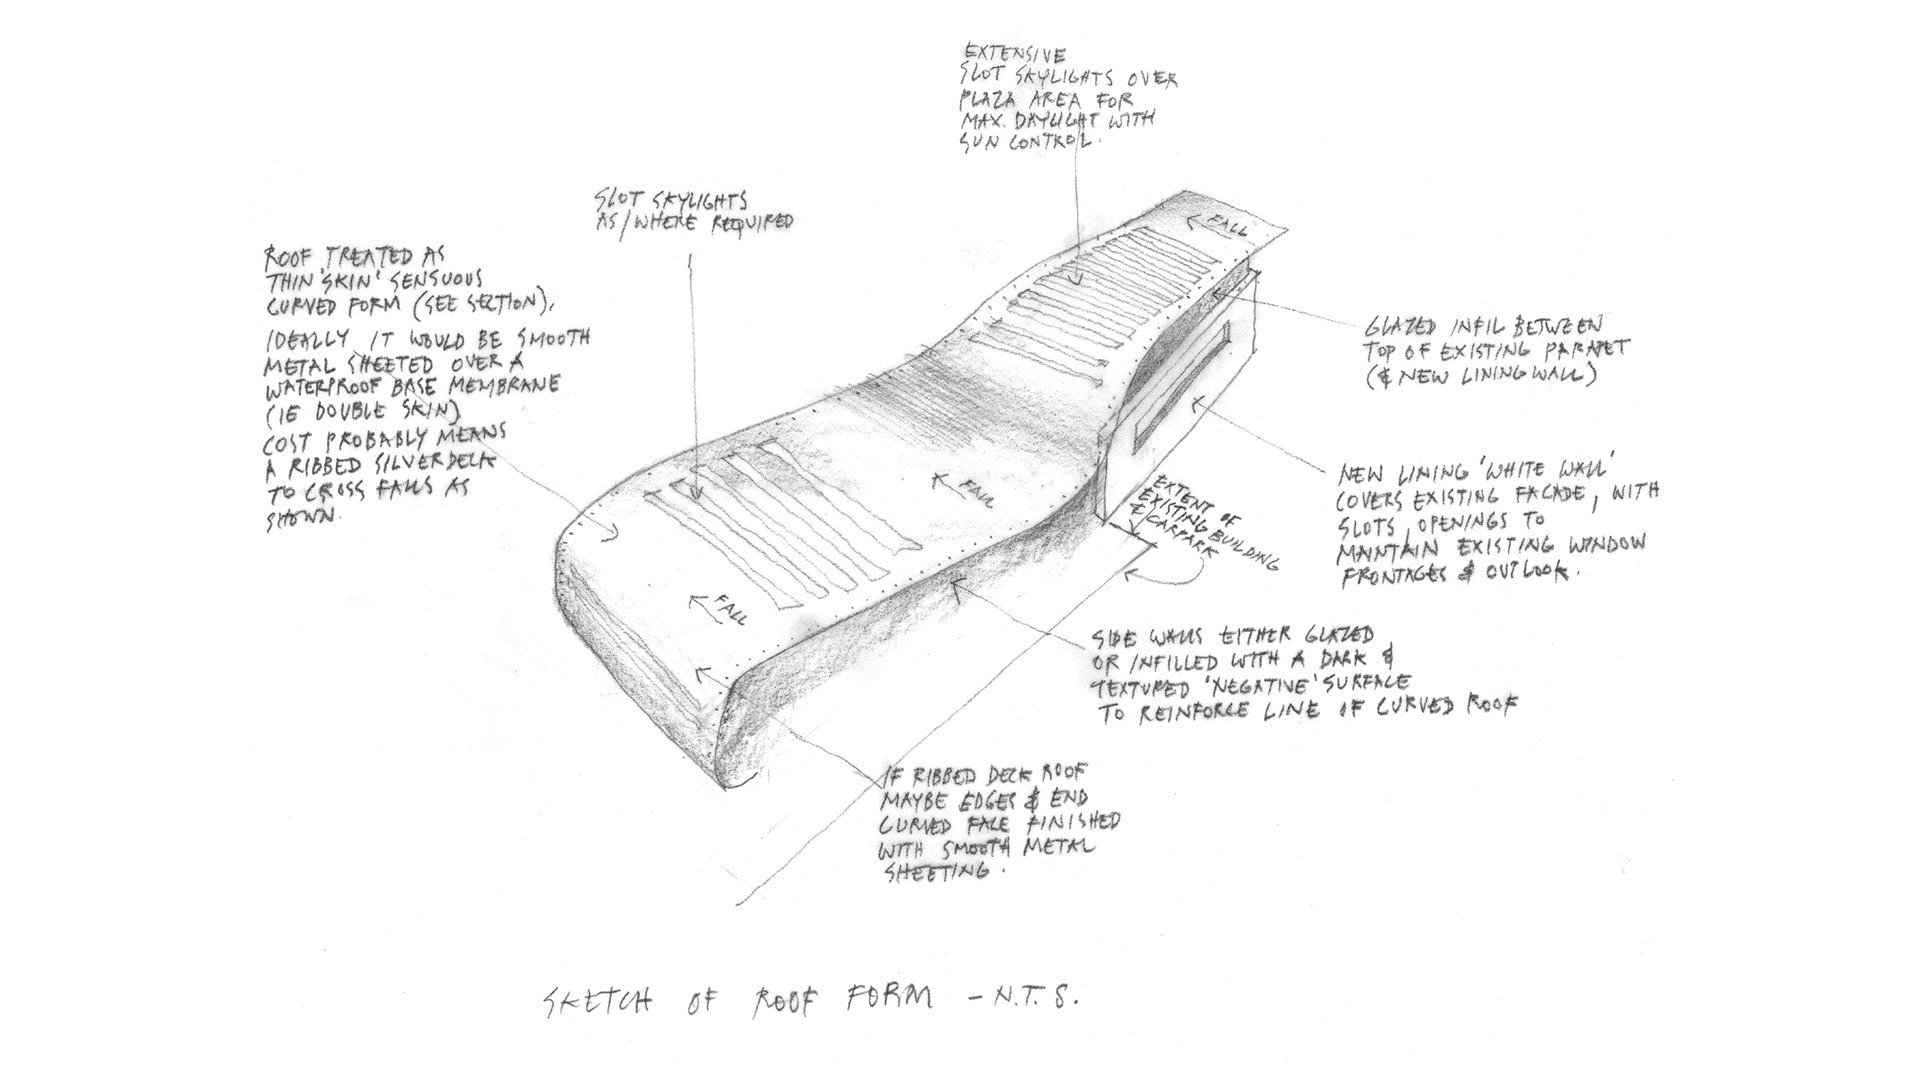 EXTENSIVE
SLOT SKYLIGHTS OVER
PLAZA AREA FOR
MAX. DAYLIGHT WITH
SUN CONTROL.
SLOT SKYLIGHTS
AS/WHERE REQUIRED
ROOF TREATED AS
THIN 'SKIN' SENSUOUS
CURVED FORM (SEE SECTION).
IDEALLY IT WOULD BE SMOOTH
METAL SHEETED OVER A
WATERPROOF BASE MEMBRANE
(IE DOUBLE SKIN)
COST PROBABLY MEANS
A RIBBED SILVERDECK
TO CROSS FALLS AS
SHOWN.
FALL
GLAZED INFIL BETWEEN
TOP OF EXISTING PARAPET
(& NEW LINING WALL)
NEW LINING 'WHITE WALL'
COVERS EXISTING FACADE, WITH
SLOTS, OPENINGS TO
MAINTAIN EXISTING WINDOW
FRONTAGES & OUTLOOK.
FALL
EXTENT OF
EXISTING BUILDING
& CARPARK
FALL
SIDE WALLS EITHER GLAZED
OR INFILLED WITH A DARK &
TEXTURED 'NEGATIVE' SURFACE
TO REINFORCE LINE OF CURVED ROOF
IF RIBBED DECK ROOF
MAYBE EDGES & END
CURVED FACE FINISHED
WITH SMOOTH METAL
SHEETING.
SKETCH OF ROOF FORM - N.T.S.